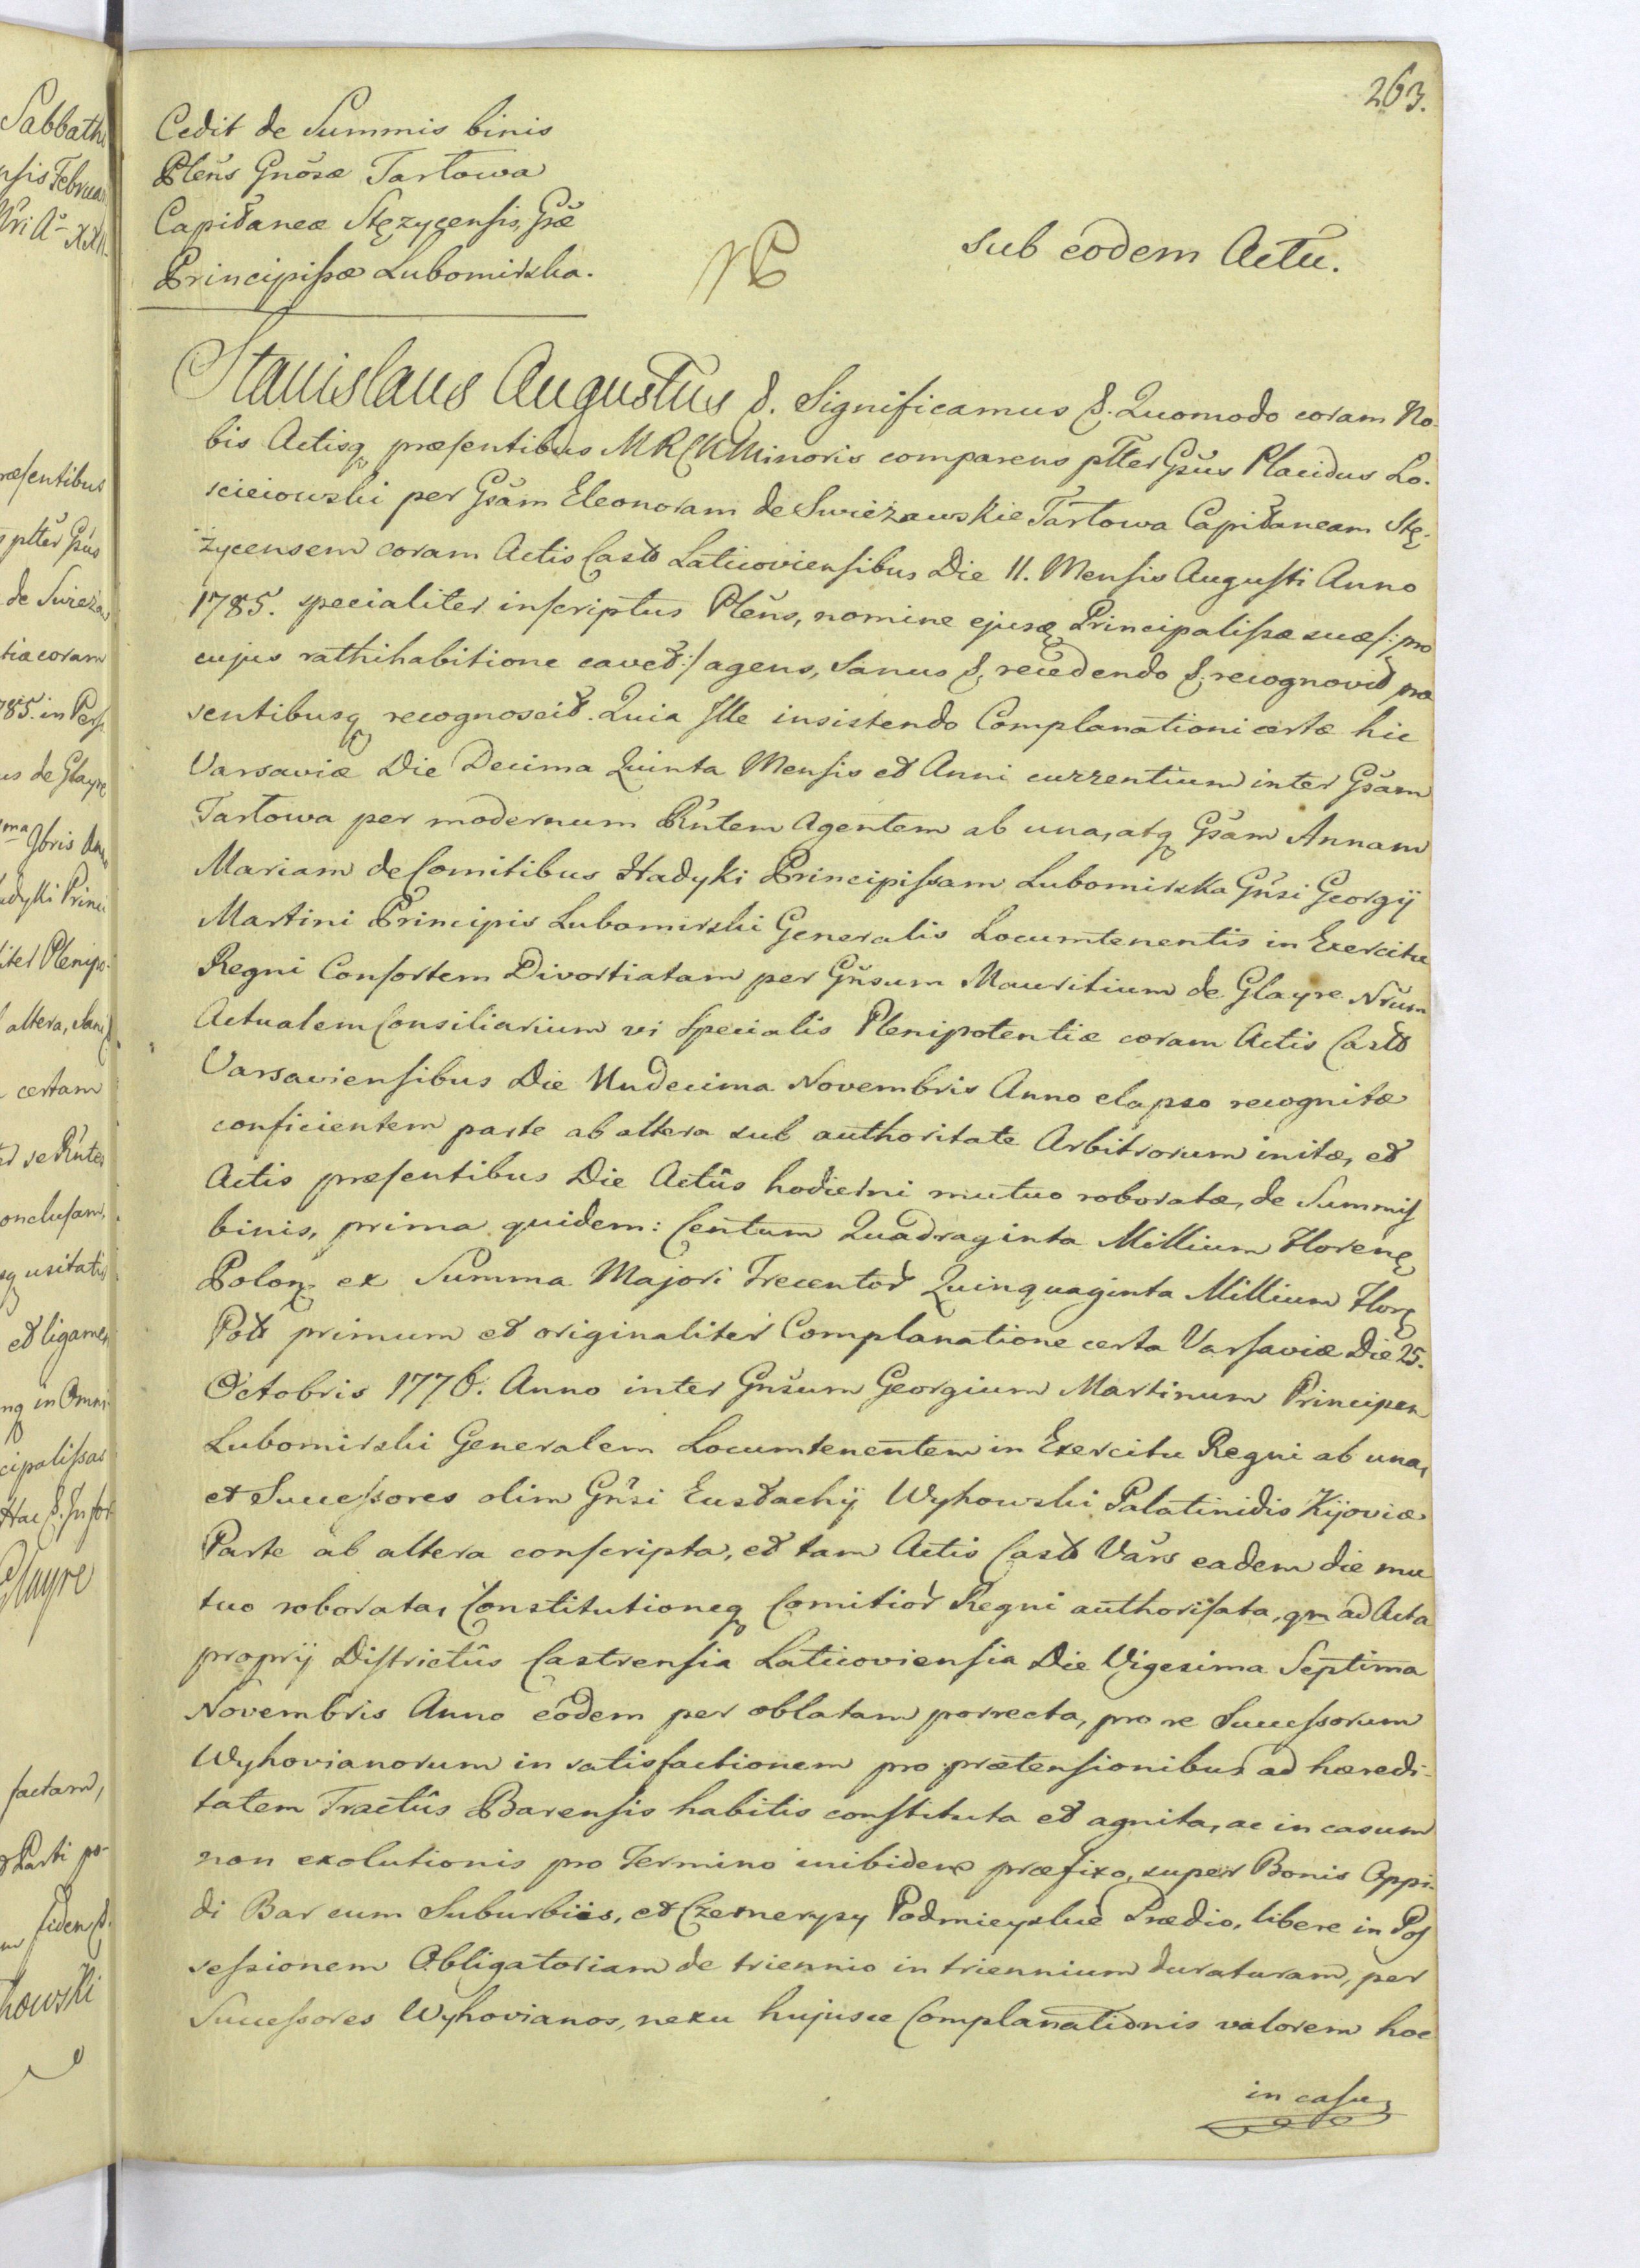 263.
Cedit de Summis binis
Pleñs Gnõsæ Tarłowa
Capitaneæ Stęzycensis, Gsæ
Principissæ Lubomirska.
sub eodem Actu.
Stanislaus Augustus &. Significamus &. Quomodo coram No-
bis Actisq præsentibus MRCM Minoris comparens ptter Gsus Placidus Lo-
scieiowski per Gsam Eleonoram de Swieżawskie Tarłowa Capitaneam Stę-
życensem coram Actis Castr Laticoviensibus Die 11. Mensis Augusti Anno
1785. specialiter inscriptus Pleñs, nomine ejusq Principalissæ suæ /: pro
cujus rathihabitione cavet :/ agens, Sanus &; recedendo &; recognovit præ
sentibusq recognoscit. Quia Ille insistendo Complanationi certæ hic
Varsaviæ Die Decima Quinta Mensis et Anni currentium inter Gsam
Tarłowa per modernum Rñtem Agentem ab una, atq Gsam Annam
Mariam de Comitibus Hadyki Principissam Lubomirska Gñsi Georgij
Martini Principis Lubomirski Generalis Locumtenentis in Exercitu
Regni Consortem Divortiatam per Gñsum Mauritium de Glayre Nrum
Actualem Consiliarium vi specialis Plenipotentiæ coram Actis Castr
Varsaviensibus Die Undecima Novembris Anno elapso recognitæ
conficientem parte ab altera sub authoritate Arbitrorum initæ, et
Actis præsentibus Die Actûs hodierni mutuo roboratæ, de Summis
binis, prima quidem: Centum Quadraginta Millium Florenq
Polonq ex Summa Majori Trecentor Quinquaginta Millium Florq
Potr primum et originaliter Complanatione certa Varsaviæ Die 25.
Octobris 1776. Anno inter Gnsum Georgium Martinum Principem
Lubomirski Generalem Locumtenentem in Exercitu Regni ab una,
et Successores olim Gñsi Eustachij Wyhowski Palatinidis Kijoviæ
Parte ab altera conscripta, et tam Actis Castr Vars eadem die mu
tuo roborata, Constitutioneq Comitior Regni authorisata, qm ad Acta
proprij Districtûs Castrensia Laticoviensia Die Vigesima Septima
Novembris Anno eodem per oblatam porrecta, pro re Successorum
Wyhovianorum in satisfactionem pro prætensionibus ad hæredi-
tatem Tractûs Barensis habitis constituta et agnita, ac in casum
non exolutionis pro Termino inibidem præfixo, super Bonis Oppi-
di Bar cum Suburbiis, et Czemerysy Podmieyskie Prædio, libere in Pos
sessionem Obligatoriam de triennio in triennium duraturam, per
Successores Wyhovianos, nexu hujusce Complanationis valorem hoc
in casu